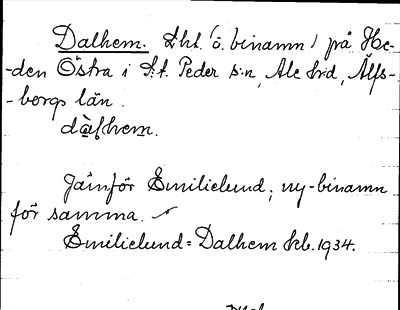 Dalhem. Lht (o. binamn) på He-
-den Östra i St. Peder s:n, Ale hd, Älfs-
-borgs län.
dàlhem.
Jämför Emilielund, ny-binamn
för samma.
Emilielund = Dalhem kb. 1934.